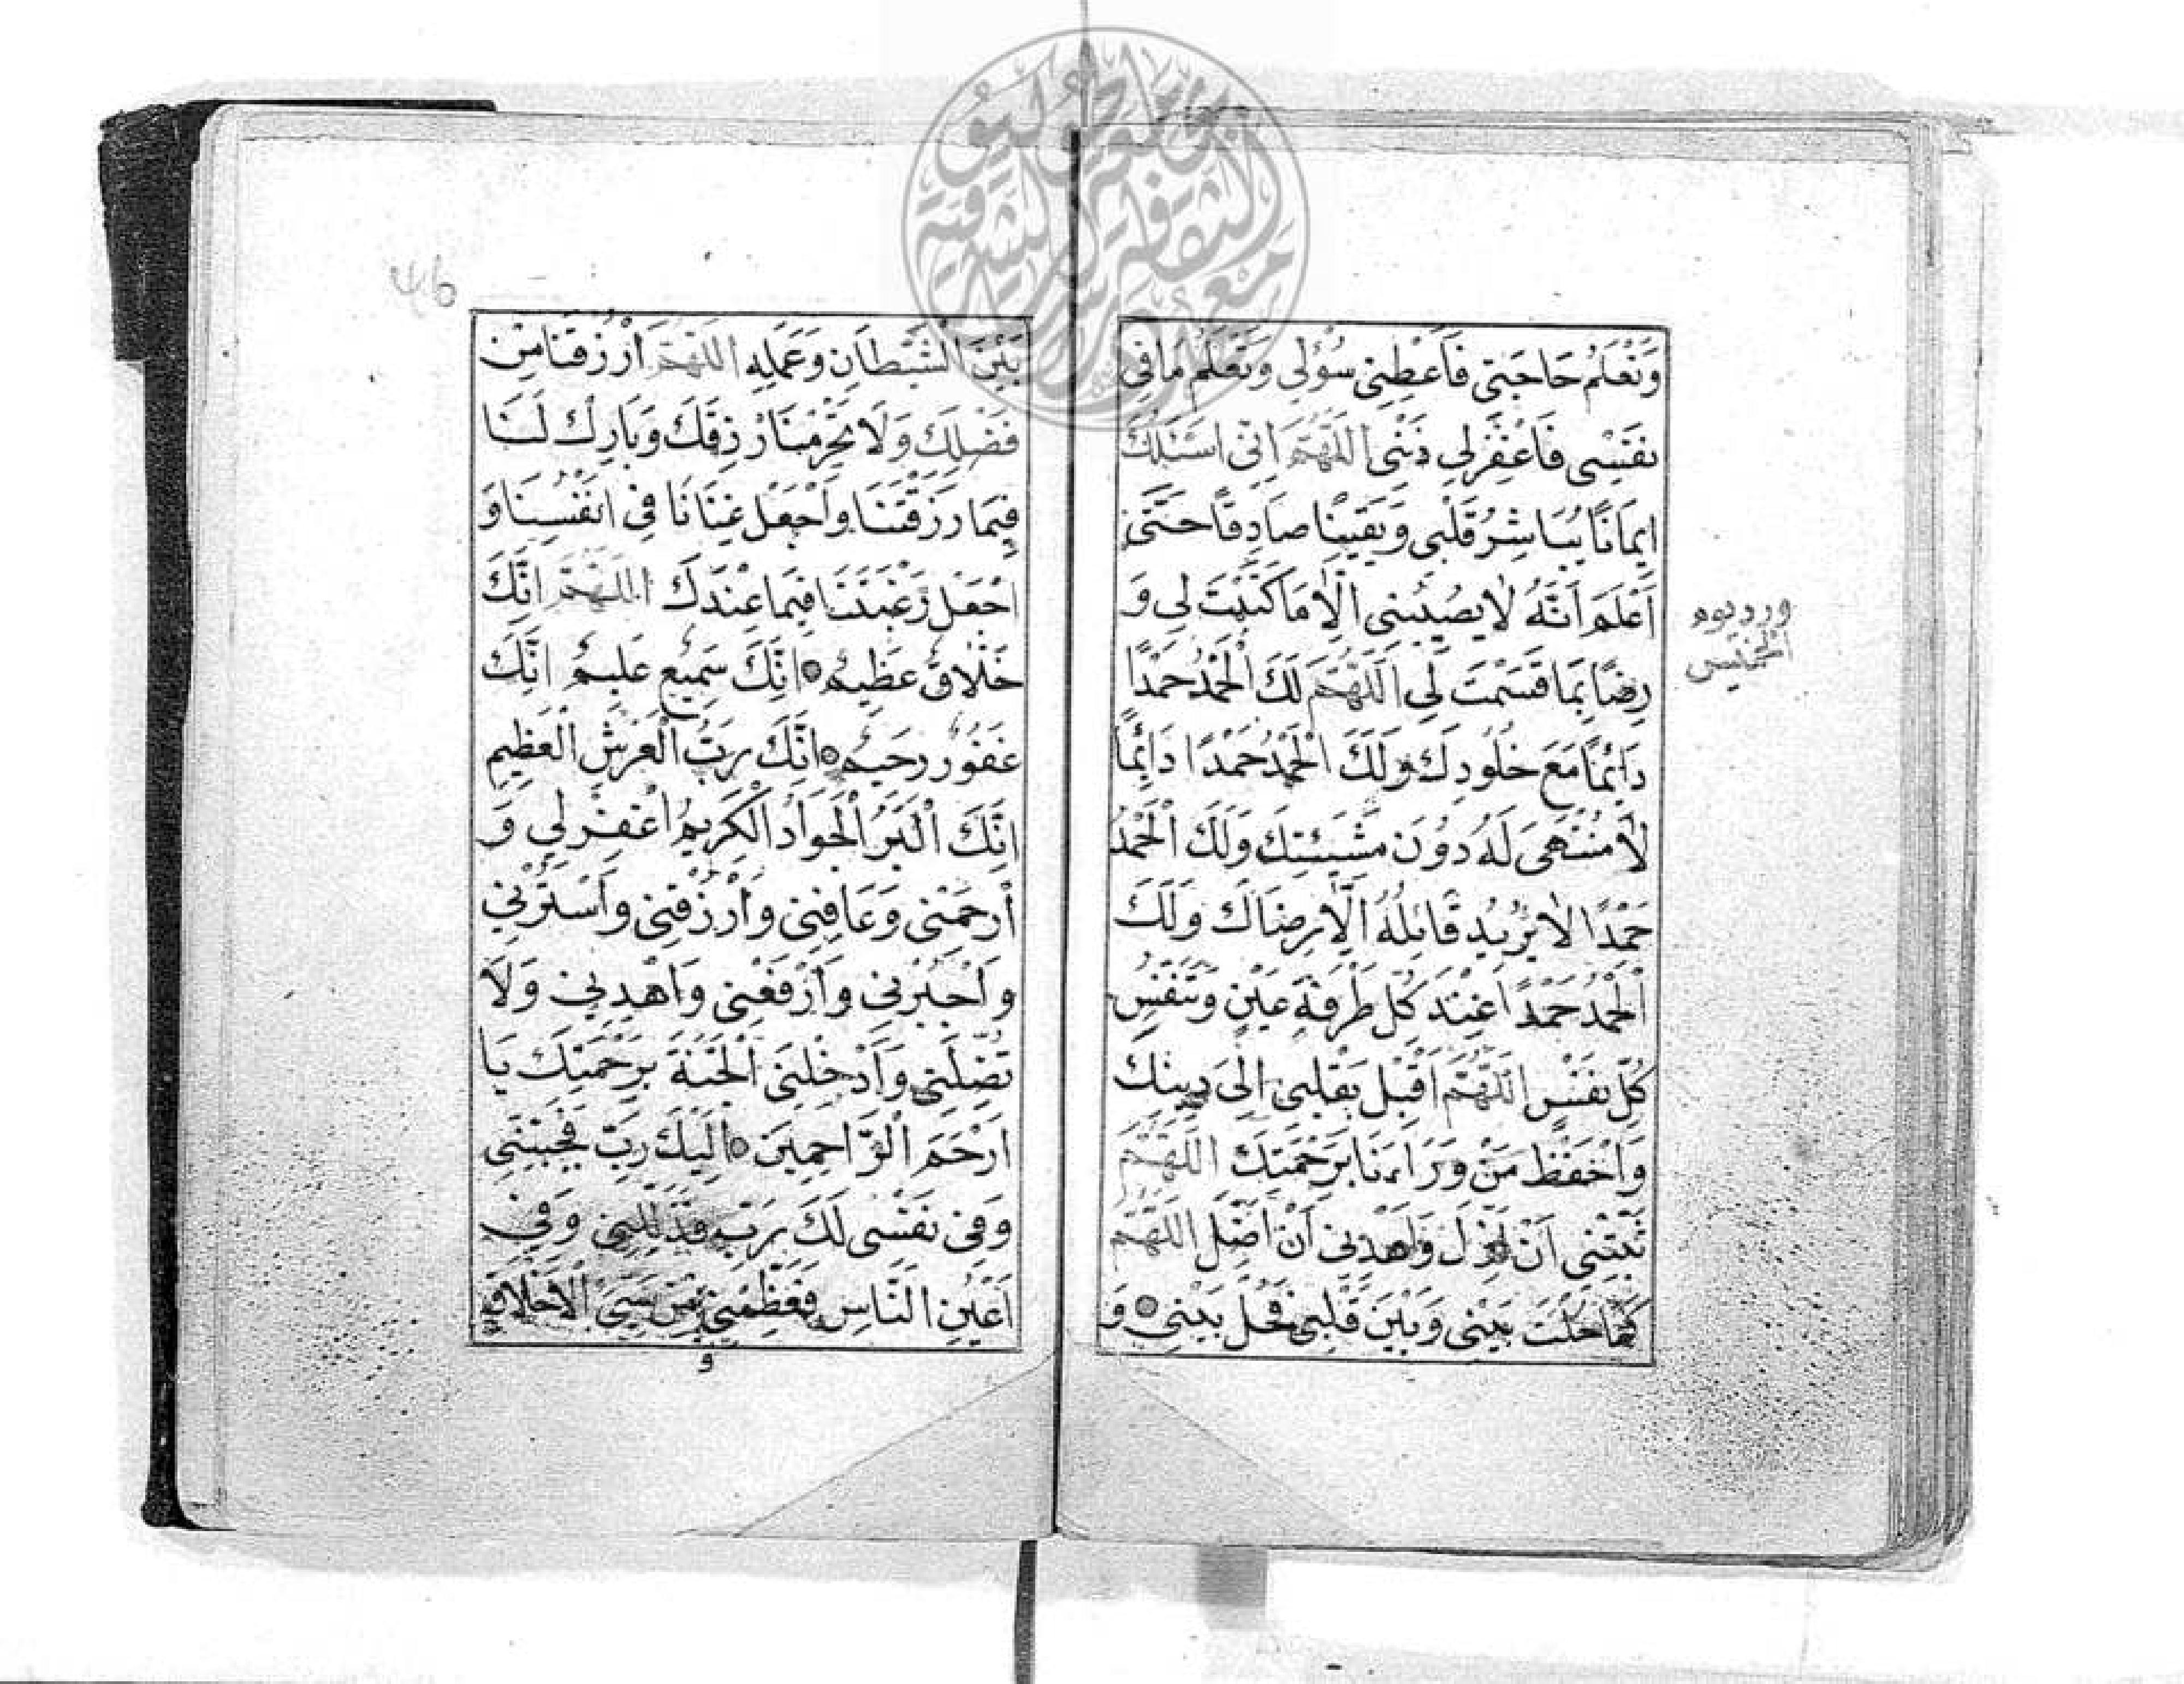 وَتَعْلَمُ حَاجَتِي فَاَعْطِنِي سُؤْلِي وَتَعْلَمُ مَا فِي
نَفْسِي فَاغْفِرْلِي ذَنْبِي اَللّٰهُمَّ اِنِّي اَسْئَلُكَ
اِيمَانًا يُبَاشِرُ قَلْبِي وَيَقِينًا صَادِقًا حَتّٰى
اَعْلَمَ اَنَّهُ لَا يُصِيبُنِي اِلَّا مَا كَتَبْتَ لِي وَ
رِضًا بِمَا قَسَمْتَ لِي اَللّٰهُمَّ لَكَ الْحَمْدُ حَمْدًا
دَائِمًا مَعَ خُلُودِكَ وَلَكَ الْحَمْدُ حَمْدًا دَائِمًا
لَا مُنْتَهٰى لَهُ دُونَ مَشِيئَتِكَ وَلَكَ الْحَمْدُ
حَمْدًا لَا يُرِيدُ قَائِلُهُ اِلَّا رِضَاكَ وَلَكَ
الْحَمْدُ حَمْدًا عِنْدَ كُلِّ طَرْفَةِ عَيْنٍ وَتَنَفُّسِ
كُلِّ نَفْسٍ اَللّٰهُمَّ اَقْبِلْ بِقَلْبِي اِلٰى دِينِكَ
وَاحْفَظْ مَنْ وَرَاءَنَا بِرَحْمَتِكَ اَللّٰهُمَّ
ثَبِّتْنِي اَنْ اَزِلَّ وَاهْدِنِي اَنْ اَضِلَّ اَللّٰهُمَّ
كَمَا حُلْتَ بَيْنِي وَبَيْنَ قَلْبِي فَحُلْ بَيْنِي وَ
ورد يوم
الخميس
بَيْنَ الشَّيْطَانِ وَعَمَلِهِ اَللّٰهُمَّ ارْزُقْنَا مِنْ
فَضْلِكَ وَلَا تَحْرِمْنَا رِزْقَكَ وَبَارِكْ لَنَا
فِيمَا رَزَقْتَنَا وَاجْعَلْ غِنَانَا فِي اَنْفُسِنَا وَ
اجْعَلْ رَغْبَتَنَا فِيمَا عِنْدَكَ اَللّٰهُمَّ اِنَّكَ
خَلَّاقٌ عَظِيمٌ اِنَّكَ سَمِيعٌ عَلِيمٌ اِنَّكَ
غَفُورٌ رَحِيمٌ اِنَّكَ رَبُّ الْعَرْشِ الْعَظِيمِ
اِنَّكَ الْبَرُّ الْجَوَادُ الْكَرِيمُ اغْفِرْلِي وَ
ارْحَمْنِي وَعَافِنِي وَارْزُقْنِي وَاسْتُرْنِي
وَاجْبُرْنِي وَارْفَعْنِي وَاهْدِنِي وَلَا
تُضِلَّنِي وَاَدْخِلْنِي الْجَنَّةَ بِرَحْمَتِكَ يَا
اَرْحَمَ الرَّاحِمِينَ اِلَيْكَ رَبِّ فَحَبِّبْنِي
وَفِي نَفْسِي لَكَ رَبِّ فَذَلِّلْنِي وَفِي
اَعْيُنِ النَّاسِ فَعَظِّمْنِي وَمِنْ سَيِّئِ الْاَخْلَاقِ
و